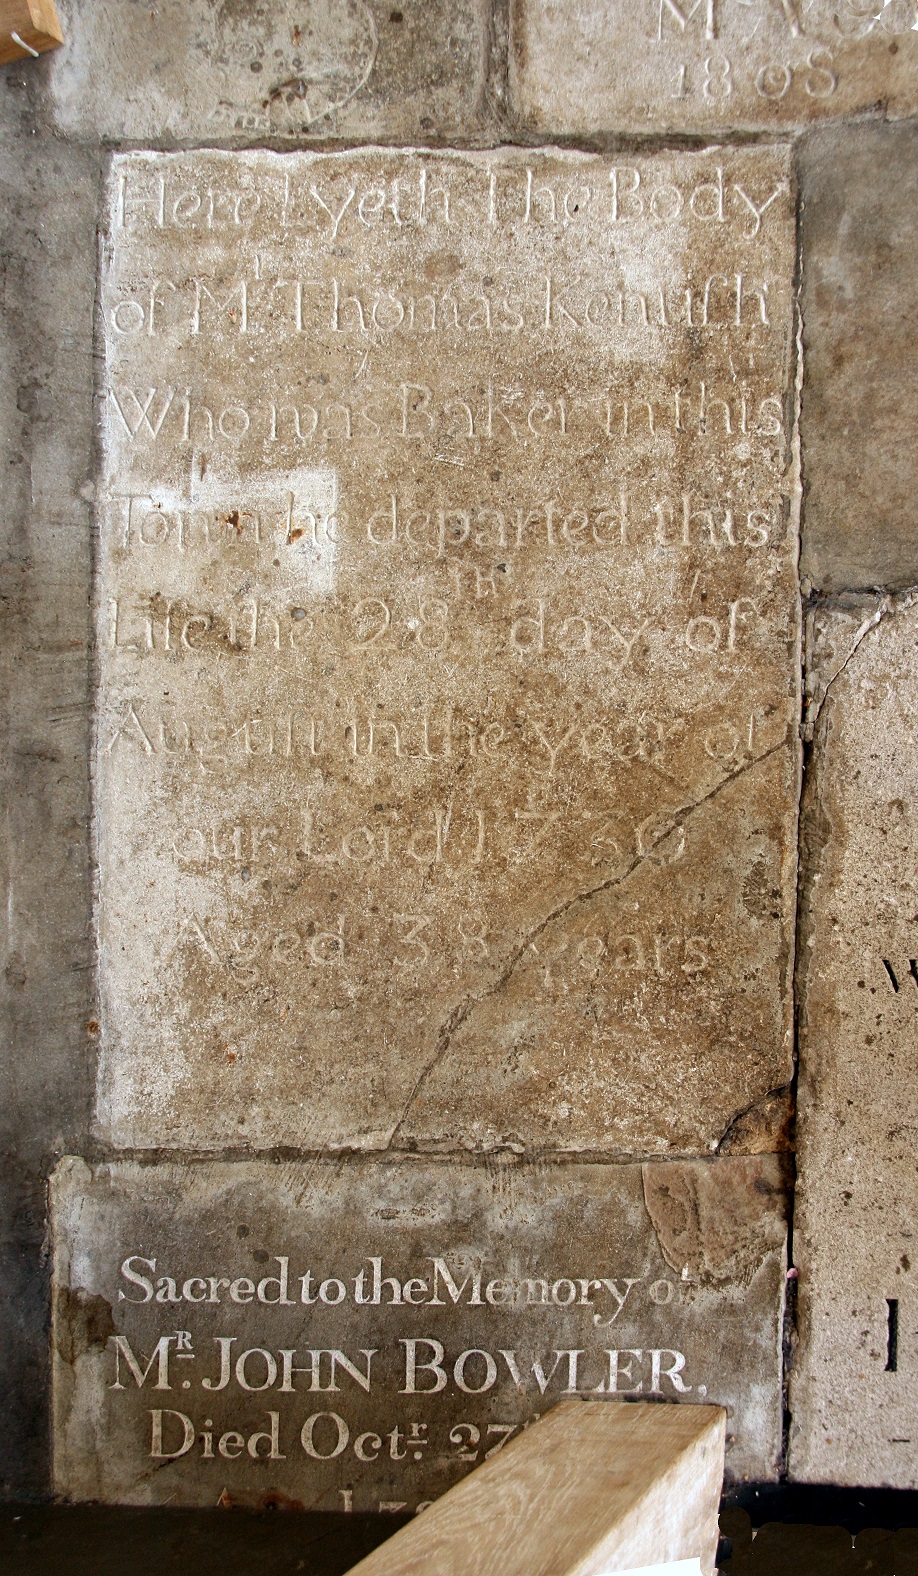 1808
Here Lyeth The Body
of Mr Thomas Kentish
Who was Baker in this
Town he departed this
Life the 28th day of
August in the year of
our Lord 1730
Aged 38 years
Sacred to the Memory of
MR. JOHN BOWLER,
Died Octr. 27th